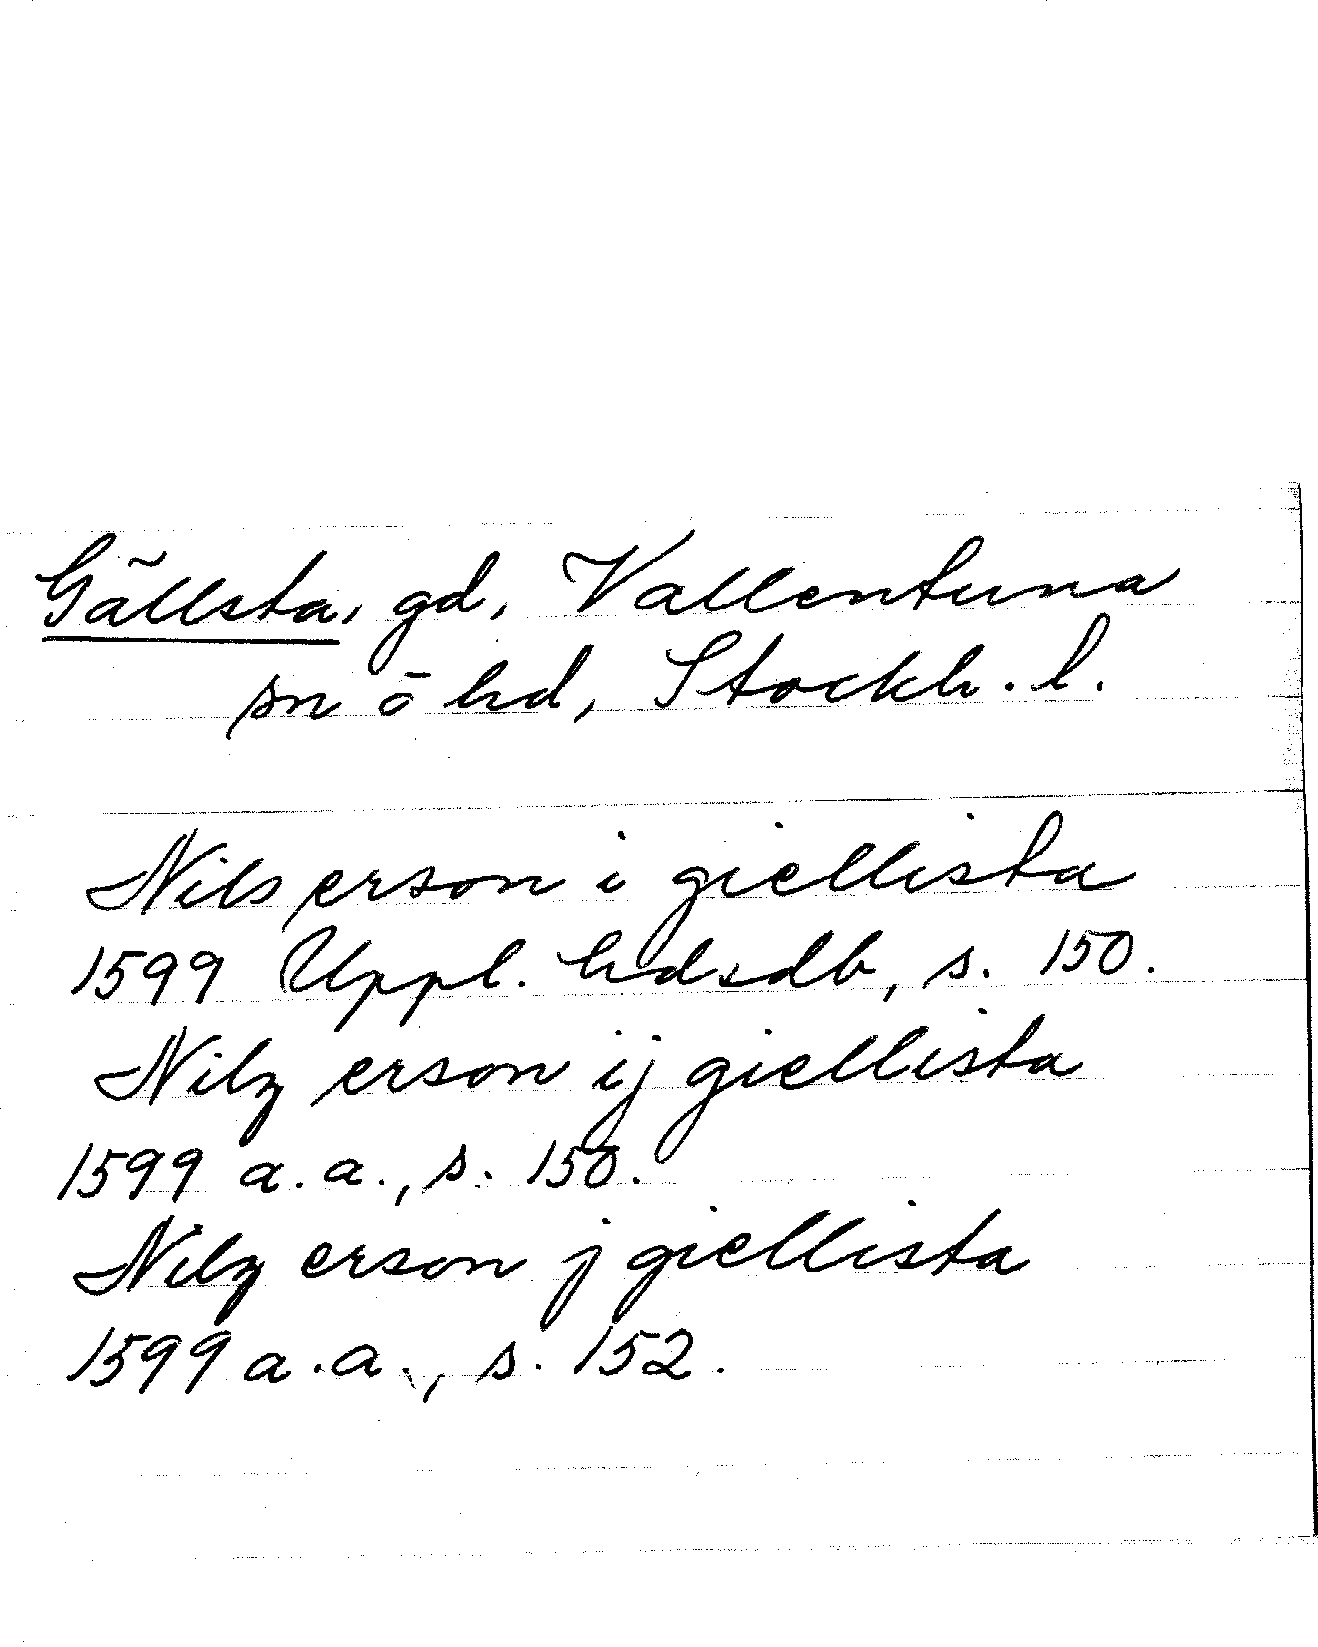 Gällsta, gd, Vallentuna
sn o hd, Stockh. l.
Nils erson i giellista
1599 Uppl. hdsdb, s. 150.
Nilz erson ij giellista
1599 a.a., s. 150.
Nilz erson j giellista
1599 a.a., s. 152.